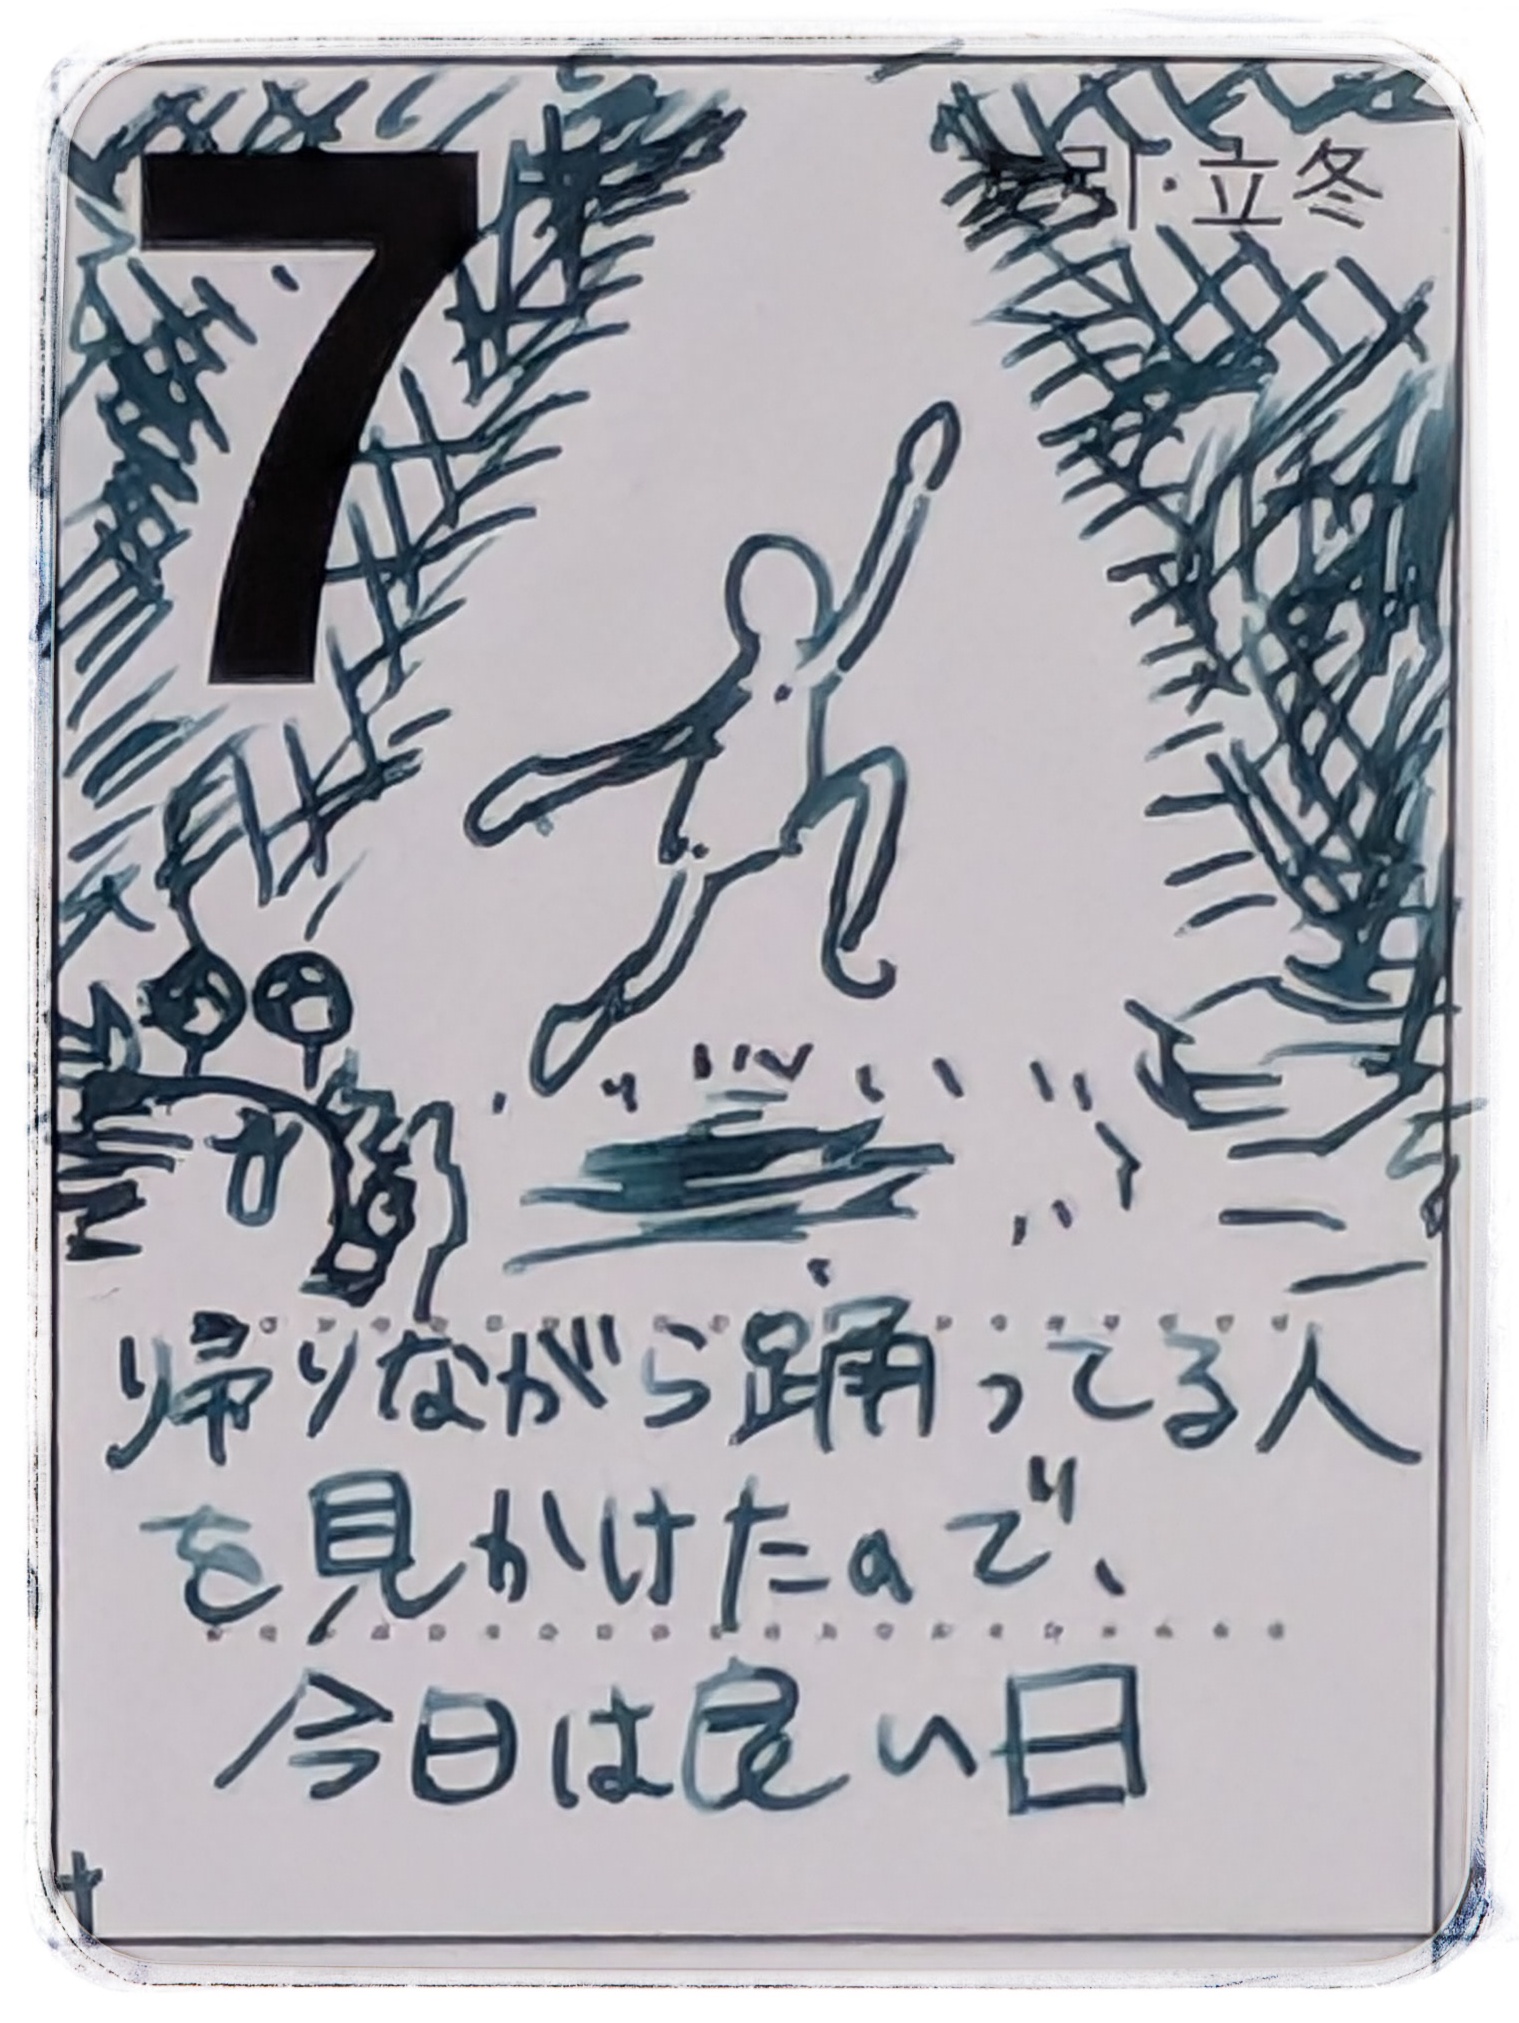 7
引・立冬
帰りながら踊ってる人
を見かけたので、
今日は良い日